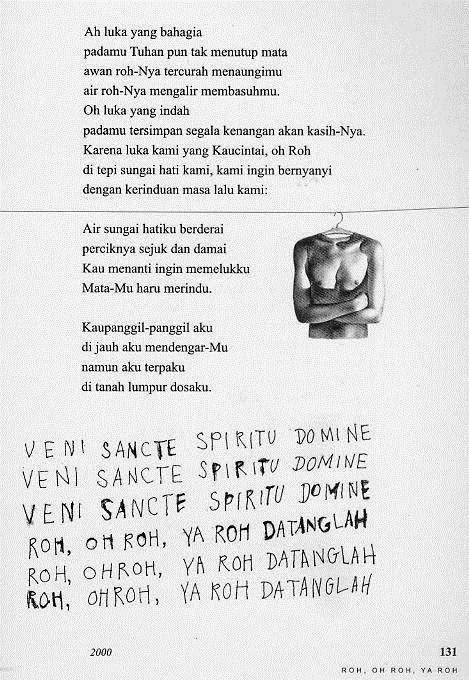 Ah luka yang bahagia
padamu Tuhan pun tak menutup mata
awan roh-Nya tercurah menaungimu
air roh-Nya mengalir membasuhmu.
Oh luka yang indah
padamu tersimpan segala kenangan akan kasih-Nya.
Karena luka kami yang Kaucintai, oh Roh
di tepi sungai hati kami, kami ingin bernyanyi
dengan kerinduan masa lalu kami:
Air sungai hatiku berderai
perciknya sejuk dan damai
Kau menanti ingin memelukku
Mata-Mu haru merindu.
Kaupanggil-panggil aku
di jauh aku mendengar-Mu
namun aku terpaku
di tanah lumpur dosaku.
VENI SANCTE SPIRITU DOMINE
VENI SANCTE SPIRITU DOMINE
VENI SANCTE SPIRITU DOMINE
ROH, OH ROH, YA ROH DATANGLAH
ROH, OH ROH, YA ROH DATANGLAH
ROH, OH ROH, YA ROH DATANGLAH
2000
131
ROH, OH ROH, YA ROH